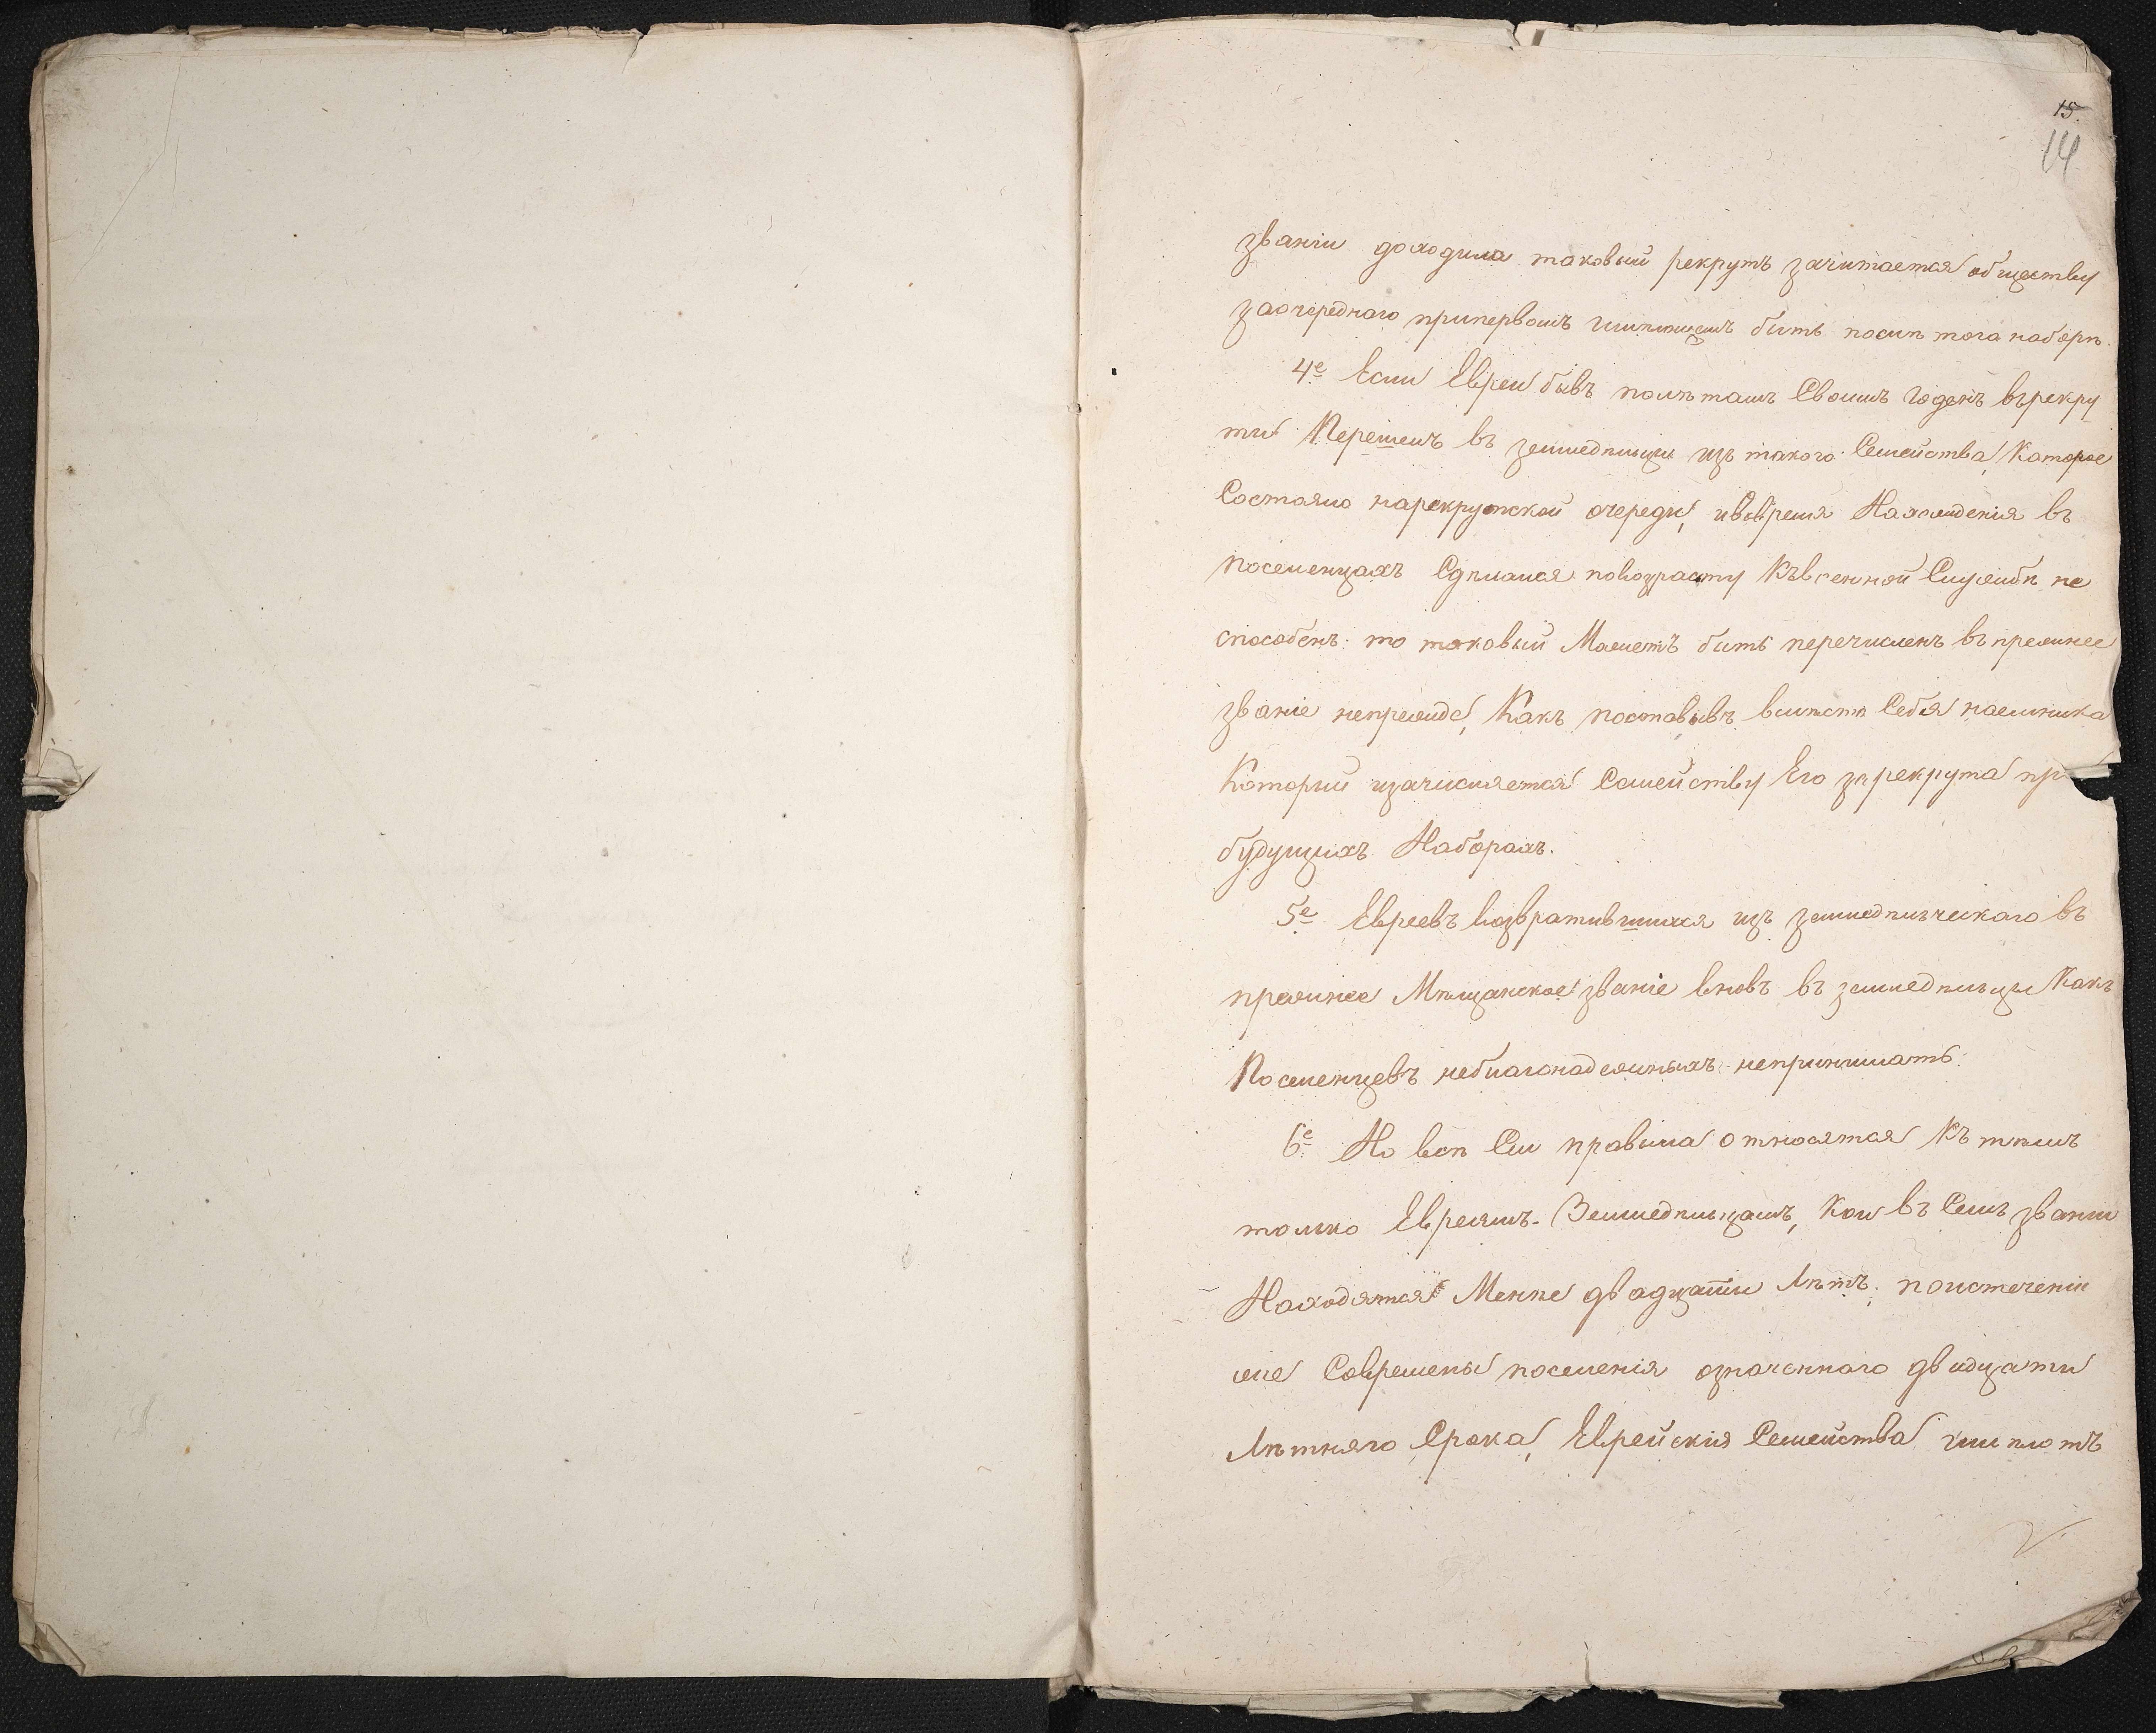 15.
14
званіи доходила таковый рекрутъ зачитается обществу
заочереднаго припервомъ имѣющемъ быть послѣ того наборѣ.
4е Если Евреи бывъ полѣтамъ Своимъ Годенъ върекру
ты Перешелъ въ земледѣльцы изъ такого Семейства, Которое
Состояло нарекрутской очереди, ивовремя Нахожденія въ
поселенцахъ Сдѣлался повозрасту Къвоенной Службѣ не
способенъ. то таковый Можетъ быть перечисленъ въпрежнее
званіе непрежде, Какъ поставивъ вмѣсто Себя наемника
Который изачисляется Семейству Его зарекрута пр
будущихъ Наборахъ.
5е Евреевъ возвратившихся изъ земледѣльческаго въ
прежнее Мѣщанское званіе вновъ въ земледѣльцы Какъ
Поселенцевъ неблагонадежныхъ непринимать.
6е Но всѣ Сии правила относятся Къ тѣмъ
только Евреямъ-Земледѣльцамъ, Кои въ Семъ званіи
Находятся Менѣе двадцати Лѣтъ. поистеченіи
же Современы поселенія означеннаго двадцати
Лѣтняго Срока, Еврейскія Семейства имѣютъ